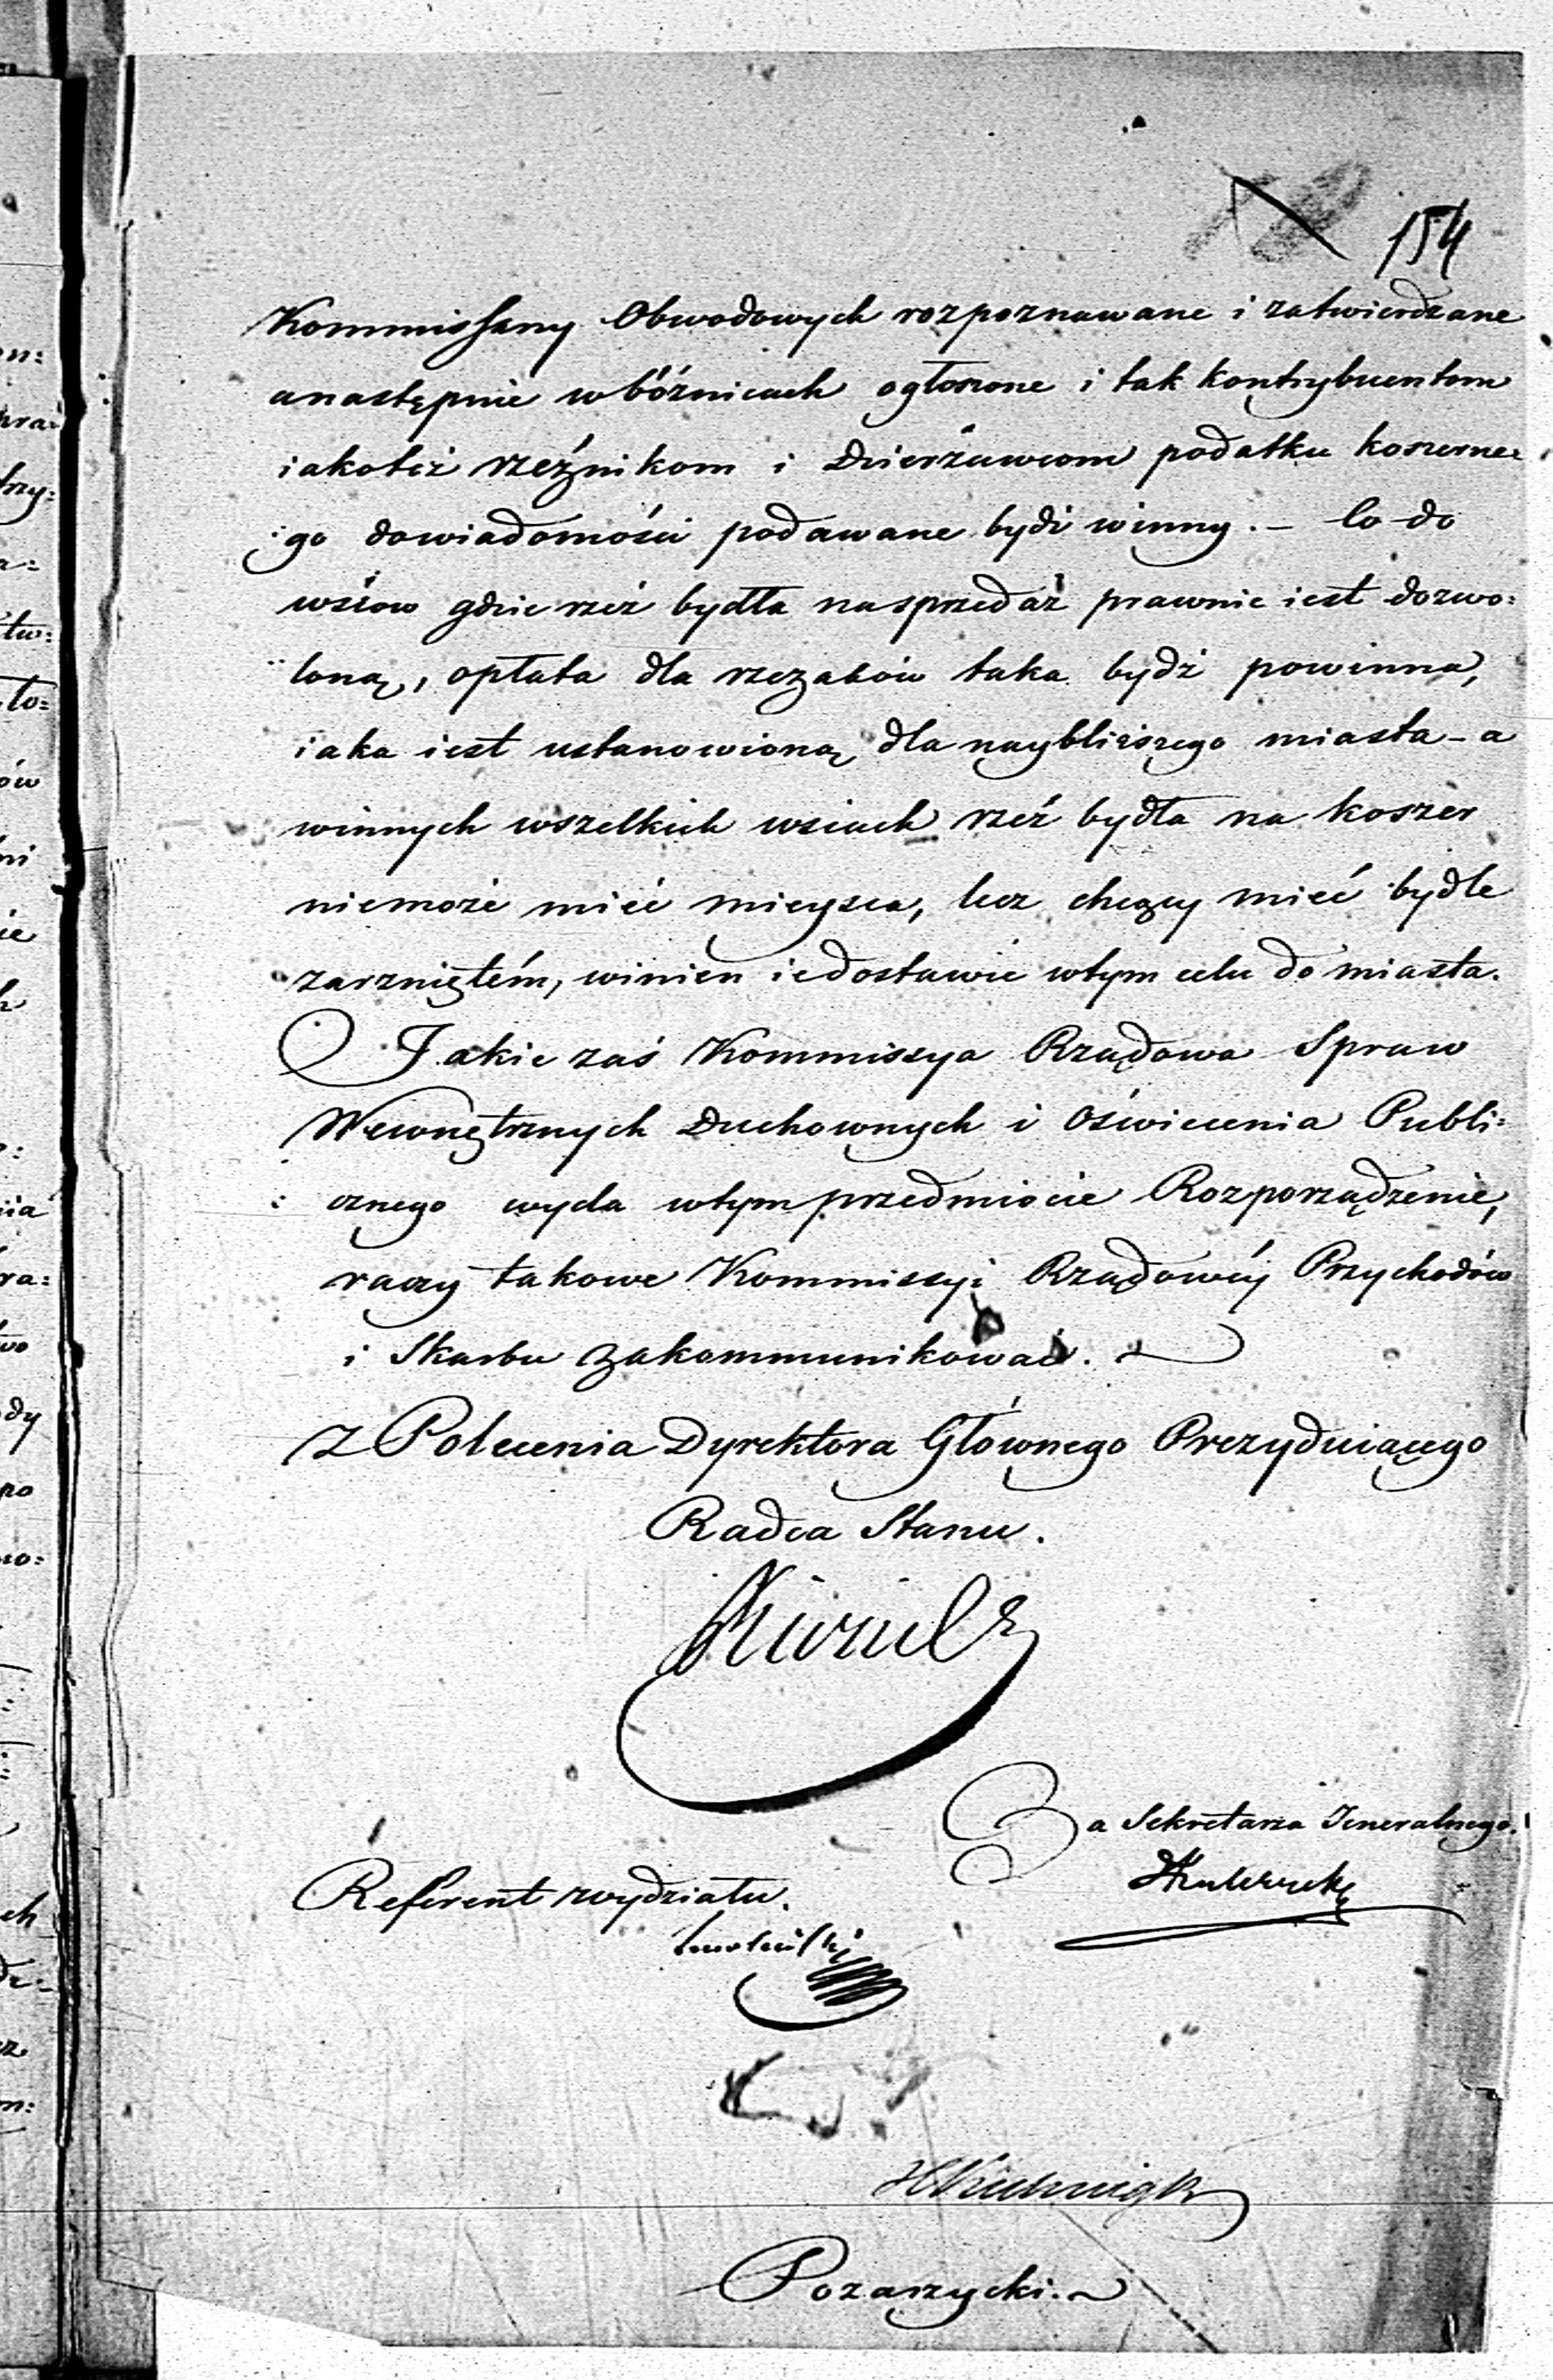 154
Kommissarzy Obwodowych rozpoznawane i zatwierdzane
a następnie w bóźnicach ogłoszone i tak kontrybuentom
iakoteż rzeźnikom i Dzierżawcom podatku koszerne:
go do wiadomości podawane bydź winny. – Co do
wsiow gdzie rzeź bydła na sprzedaż prawnie iest dozwo:
loną, opłata dla rzezaków taka bydź powinna,
iaka iest ustanowioną dla naybliższego miasta – a
w innych wszelkich wsiach rzeź bydła na koszer
niemoże mieć mieysca, lecz chcący mieć bydle
zarzniętém, winien ie dostawić w tym celu do miasta.
Jakie zaś Kommissya Rządowa Spraw
Wewnętrznych Duchownych i Oświecenia Publi:
cznego wyda w tym przedmiocie Rozporządzenie,
raczy takowe Kommissyi Rządowéj Przychodów
i Skarbu zakommunikować.
Z Polecenia Dyrektora Głównego Prezyduiącego
Radca Stanu.
Za Sekretarza Jeneralnego.
Referent wydziału.
Pozarzycki.